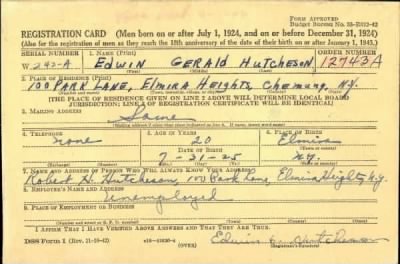 FORM APPROVED
Budget Bureau No. 33-R012-42
REGISTRATION CARD (Men born on or after July 1, 1924, and on or before December 31, 1924)
(Also for the registration of men as they reach the 18th anniversary of the date of their birth on or after January 1, 1943.)
SERIAL NUMBER 1. NAME (Print) ORDER NUMBER
W 242-A Edwin Gerald Hutcheson 12743A
(First) (Middle) (Last)
2. PLACE OF RESIDENCE (Print)
100 PARK LANE, Elmira Heights, Chemung N.Y.
(Number and street) (Town, township, village, or city) (County) (State)
[THE PLACE OF RESIDENCE GIVEN ON LINE 2 ABOVE WILL DETERMINE LOCAL BOARD
JURISDICTION; LINE 2 OF REGISTRATION CERTIFICATE WILL BE IDENTICAL]
3. MAILING ADDRESS
Same
(Mailing address if other than place indicated on line 2. If same, insert word same)
4. TELEPHONE 5. AGE IN YEARS 6. PLACE OF BIRTH
none 20 Elmira
DATE OF BIRTH (Town or county)
7-31-25 N.Y.
(Exchange) (Number) (Mo.) (Day) (Yr.) (State or country)
7. NAME AND ADDRESS OF PERSON WHO WILL ALWAYS KNOW YOUR ADDRESS
Robert H. Hutcheson, 100 Park Lane, Elmira Heights, N.Y.
8. EMPLOYER'S NAME AND ADDRESS
Unemployed
9. PLACE OF EMPLOYMENT OR BUSINESS
(Number and street or R. F. D. number) (Town) (County) (State)
I AFFIRM THAT I HAVE VERIFIED ABOVE ANSWERS AND THAT THEY ARE TRUE.
DSS Form 1 (Rev. 11-16-42) (OVER)
(Registrant's signature)